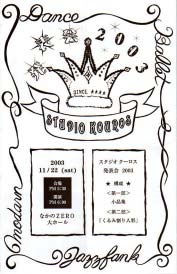 Dance
Ballet
2003
SINCE ★★★★
STUDIO KOUROS
2003
11/22 (sat)
会場
PM 5:30
開演
PM 6:00
なかのZERO
大ホール
スタジオ クーロス
発表会 2003
★ 構成 ★
<第一部>
小品集
<第二部>
「くるみ割り人形」
modern
Jazzfank